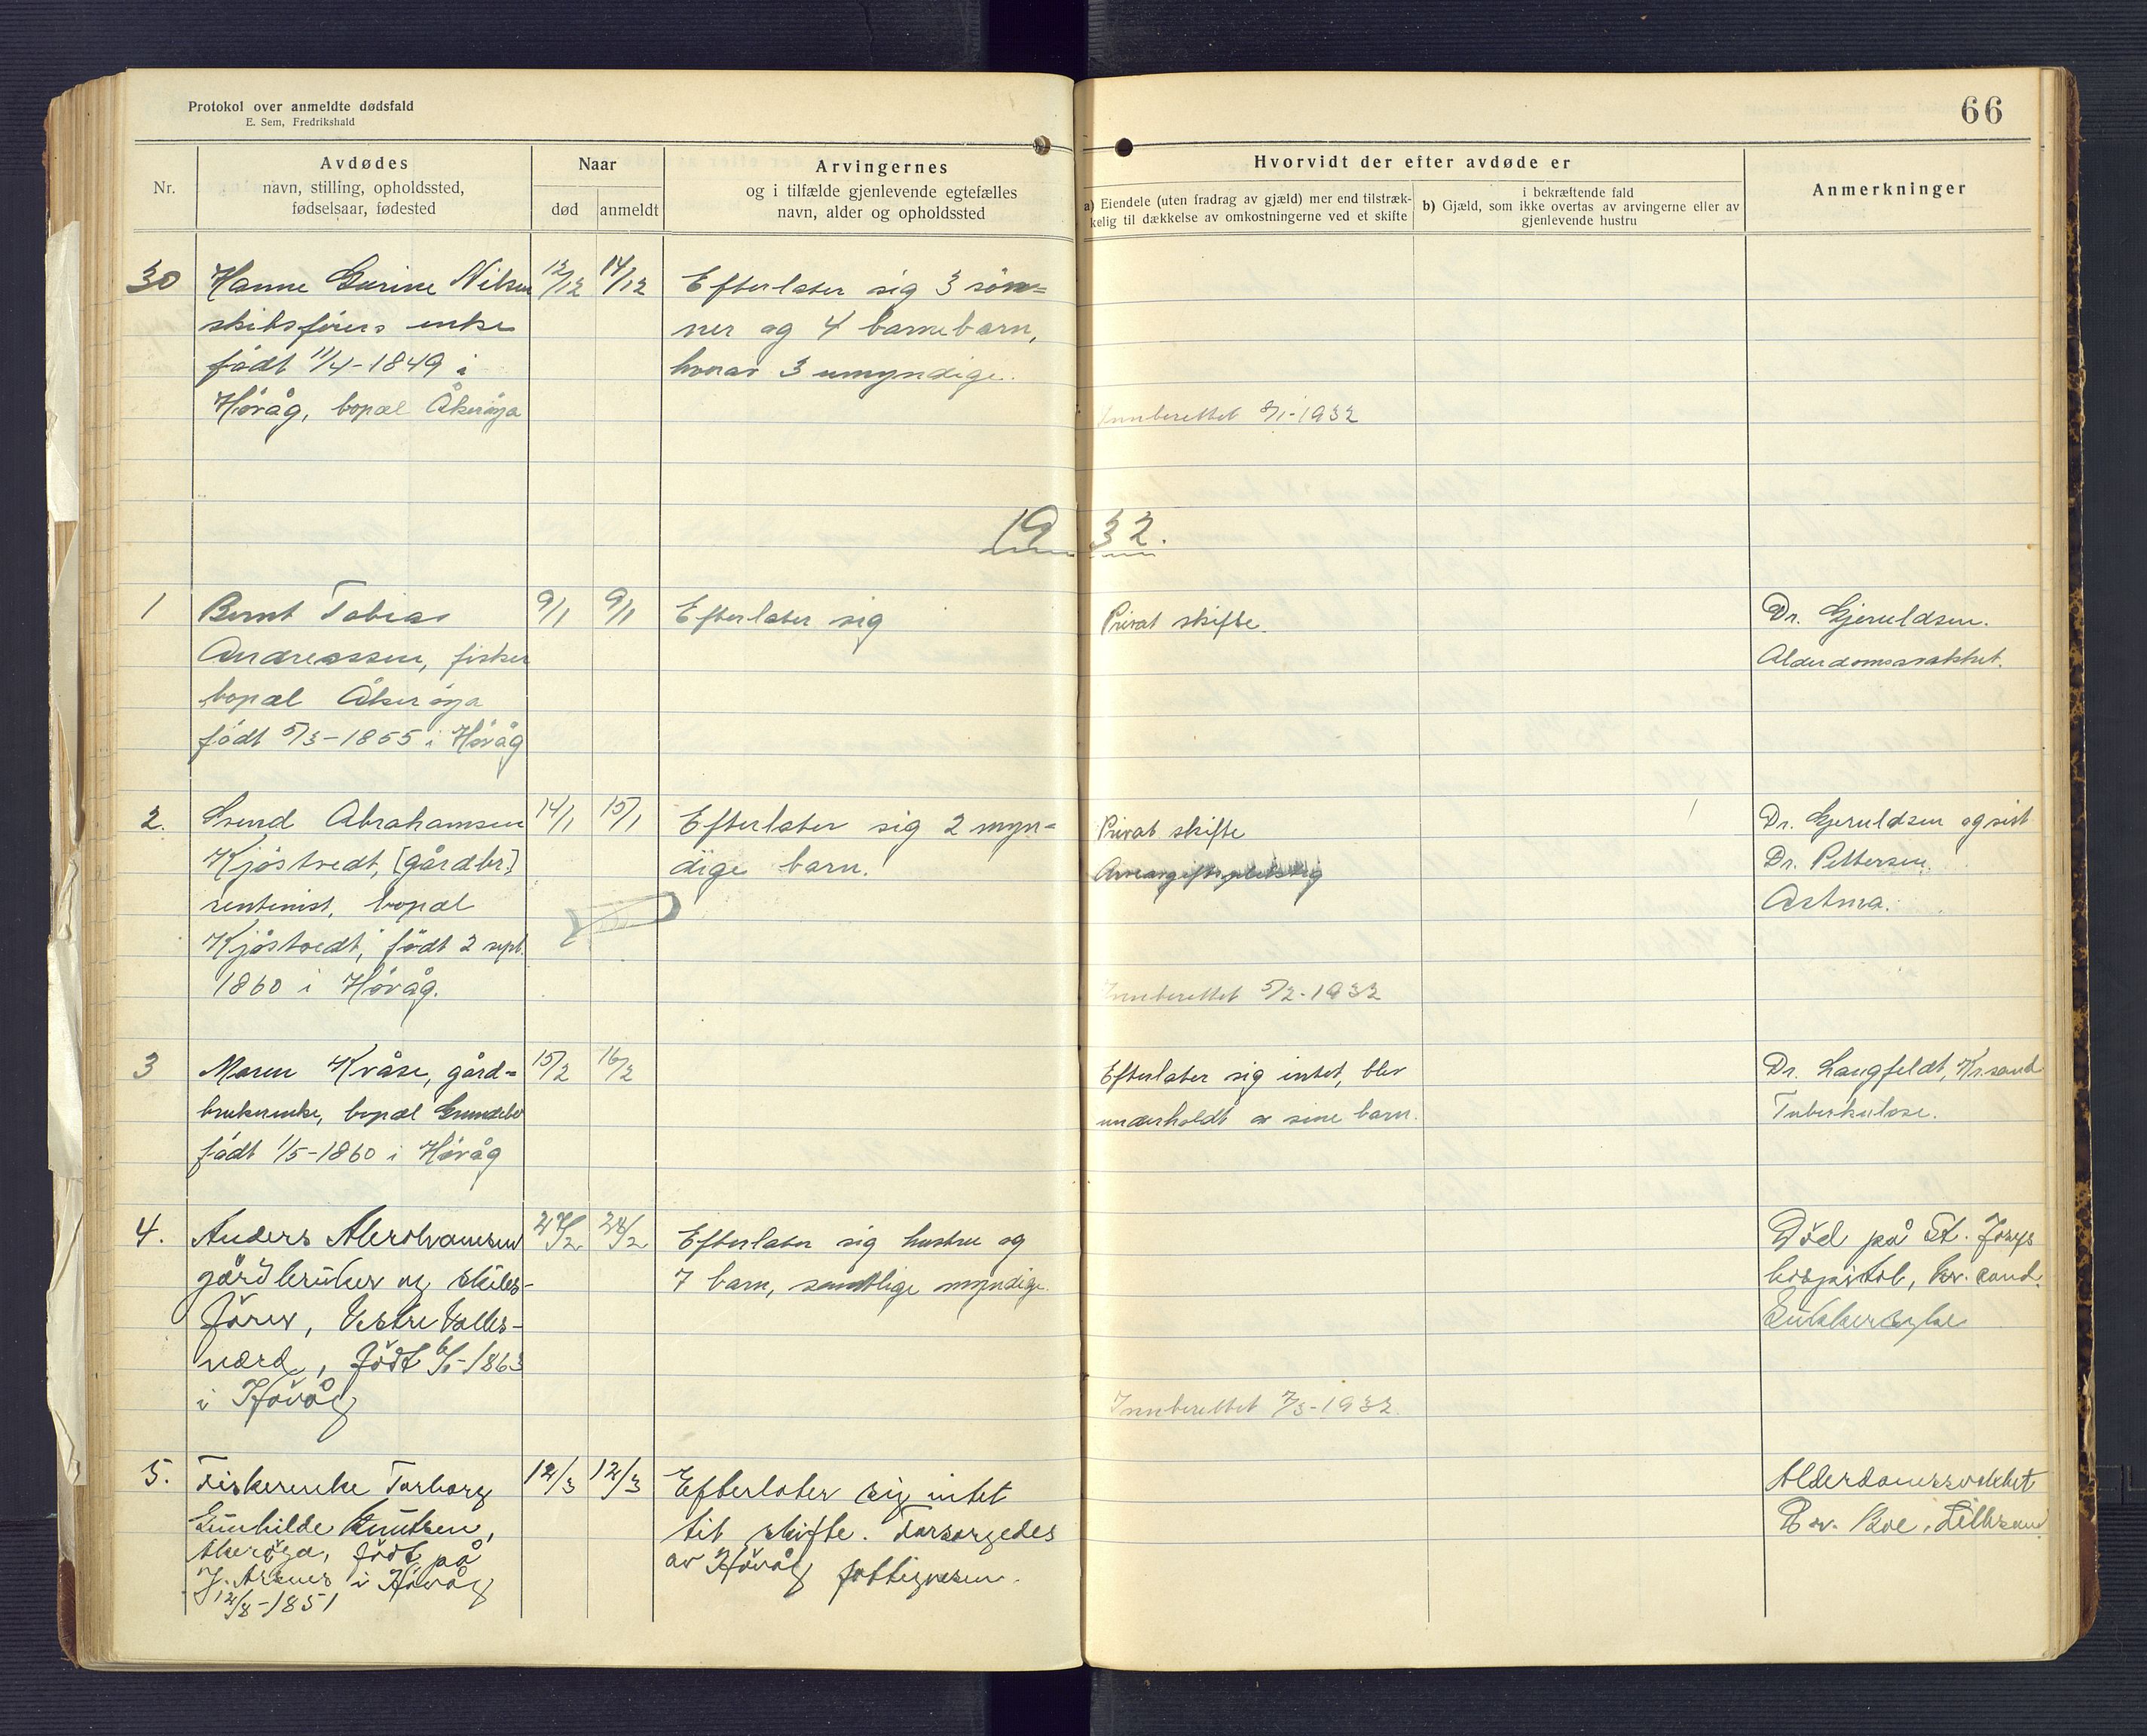 Protokol over anmeldte dødsfald
E. Sem, Fredrikshald
66
Nr.
Avdødes
navn, stilling, opholdssted,
fødselsaar, fødested
Naar
død
anmeldt
Arvingernes
og i tilfælde gjenlevende egtefælles
navn, alder og opholdssted
Hvorvidt der efter avdøde er
a) Eiendele (uten fradrag av gjæld) mer end tilstræk-
kelig til dækkelse av omkostningerne ved et skifte
i bekræftende fald
b) Gjæld, som ikke overtas av arvingerne eller av
gjenlevende hustru
Anmerkninger
30
Hanne Gurine Nilsen
skibsførers enke
født 11/4-1849 i
Høvåg, bopæl Åkerøya
12/12
14/12
Efterlater sig 3 søn=
ner og 4 barnebarn,
hvorav 3 umyndige.
Innberettet 8/1-1932
1932.
1
Bernt Tobias
Andreassen, fisker
bopæl Åkerøya
født 5/3-1855 i Høvåg
9/1
9/1
Efterlater sig
Privat skifte
Dr. Gjeruldsen.
Alderdomssvakhet.
2.
Svend Abrahamsen
Kjøstvedt, [gårdbr.]
rentenist, bopæl
Kjøstvedt, født 2 sept.
1860 i Høvåg.
14/1
15/1
Efterlater sig 2 myn=
dige barn.
Privat skifte
Innberettet 5/2-1932
Dr. Gjeruldsen og sist
Dr. Pettersen
Astma.
3
Maren Kvåse, gård=
brukerenke, bopæl
født 1/5-1860 i Høvåg
15/2
16/2
Efterlater sig intet, blev
underholdt av sine barn.
Dr. Langfeldt, Kr.sand
Tuberkulose.
4.
Anders Abrahamsen
gårdbruker og skibs-
fører, Vestre Valles-
værd, født 6/1-1863
i Høvåg
27/2
28/2
Efterlater sig hustru og
7 barn, samtlige myndige.
Innberettet 7/3-1932.
Død på St. Josefs
hospital, Kr. sand.
Sukkersyke
5.
Fiskerenke Torborg
Gunhilde Knutsen,
Åkerøya, født på
i Høvåg
12/8-1851
12/3
12/3
Efterlater sig intet
til skifte. Forsørgedes
av Høvåg fattigvesen.
Alderdomssvakhet
Dr. Boe, Lillesand.